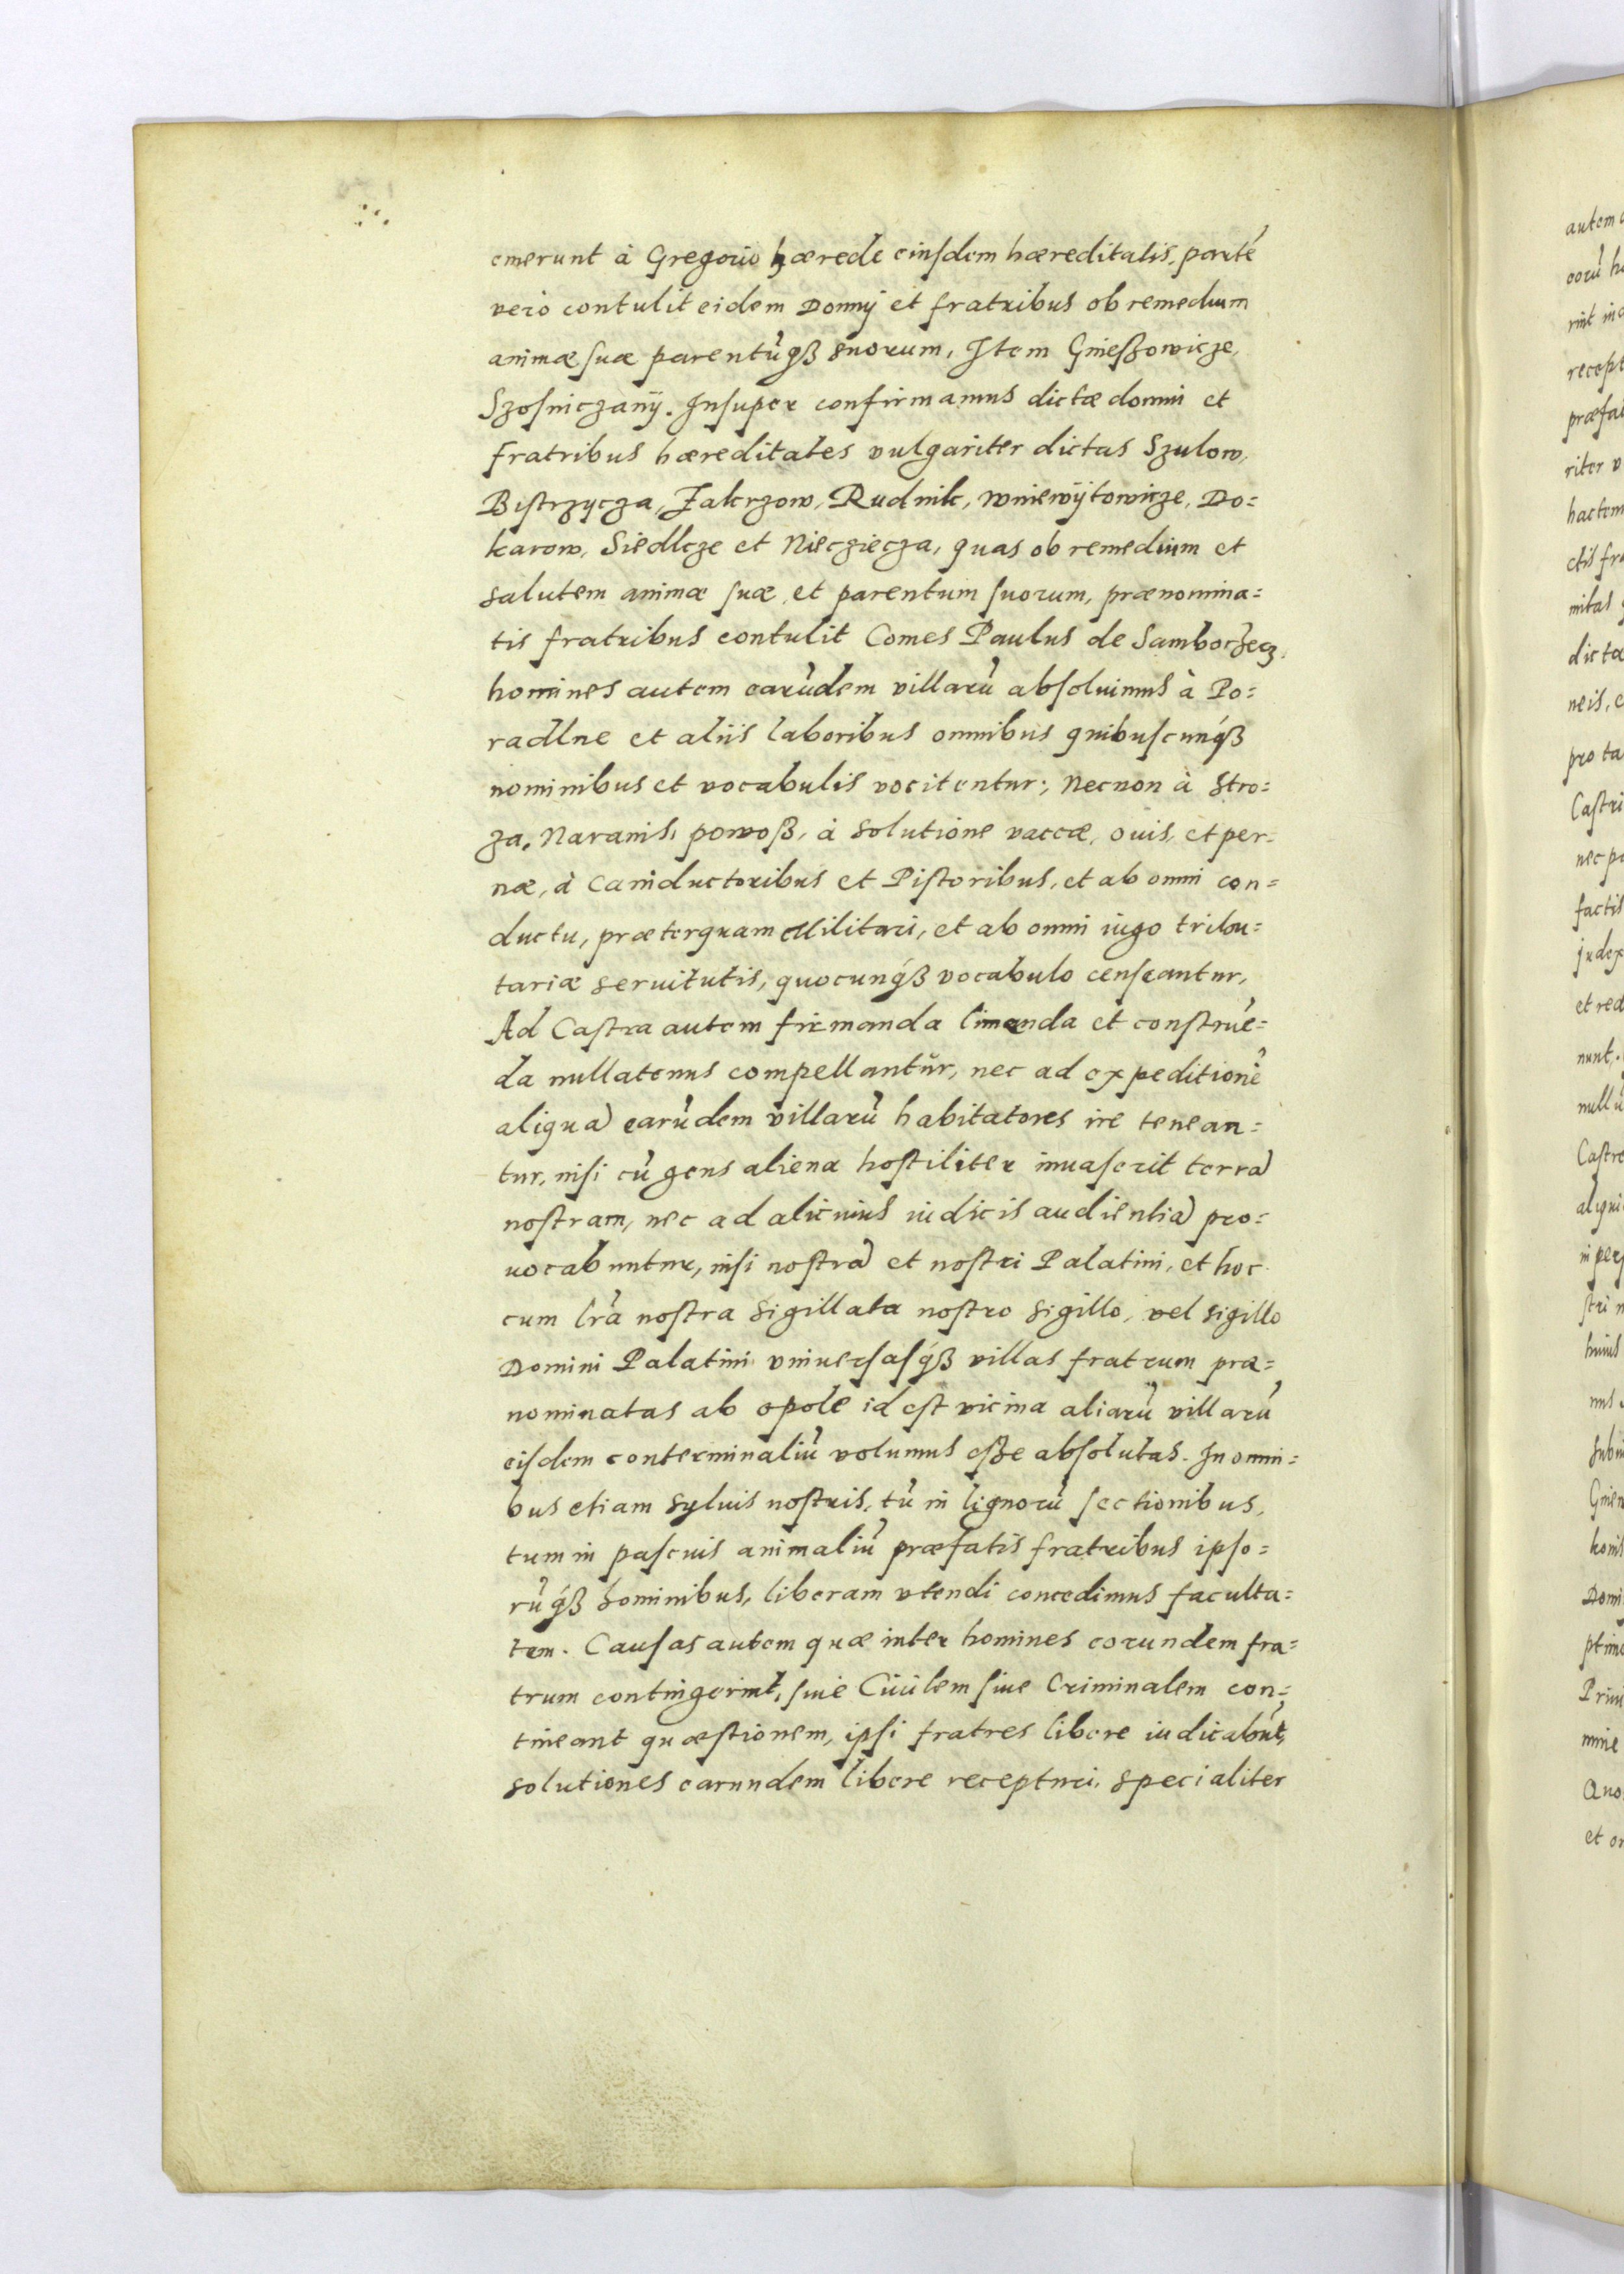 emerunt à Gregorio hærede eiusdem hæreditatis, partē
vero contulit eidem Domuj et fratribus ob remedium
animæ suæ parentūqß suorum, Item Gnieszowicze,
Szosniczanÿ. Insuper confirmamus dictæ domui et
fratribus hæreditates vulgariter dictas Szulow,
Bistrzycza, Zakrzow, Rudnik, Wniewÿtowicze, Do=
karow, Siedlcze et Niecziecza, quas ob remedium et
salutem animæ suæ et parentum suorum, prænomina=
tis fratribus contulit Comes Paulus de Samborzecz,
homines autem earūdem villarū absoluimus à Po=
radlne et aliis laboribus omnibus quibuscunqß
nominibus et vocabulis vocitentur; Necnon à Stro=
za, Naranis, powoß, à solutione vaccæ, ouis, et per=
næ, à Caniductoribus et Pistoribus, et ab omni con=
ductu, præterquam Militari, et ab omni iugo tribu=
tariæ seruitutis, quocunqß vocabulo censeantur,
Ad Castra autem firmanda limanda et construē=
da nullatenus compellantur, nec ad expeditionē
aliquā earūdem villarū habitatores ire tenean=
tur, nisi cū gens aliena hostiliter inuaserit terrā
nostram, nec ad alicuius iudicis audientiā pro=
uocabuntur, nisi nostrā et nostri Palatini, et hoc
cum lrā nostra sigillata nostro sigillo, vel sigillo
Domini Palatini vniuersasqß villas fratrum præ=
nominatas ab opole id est vicina aliarū villarū
eisdem conterminaliū volumus eße absolutas. In omni=
bus etiam syluis nostris, tū in lignorū sectionibus,
tum in pascuis animaliū præfatis fratribus ipso=
rūqß hominibus, liberam vtendi concedimus faculta=
tem. Causas autem quæ inter homines eorundem fra=
trum contingerint, siue Ciuilem siue Criminalem con=
tineant quæstionem, ipsi fratres libere iudicabūt,
solutiones earundem libere recepturi, specialiter